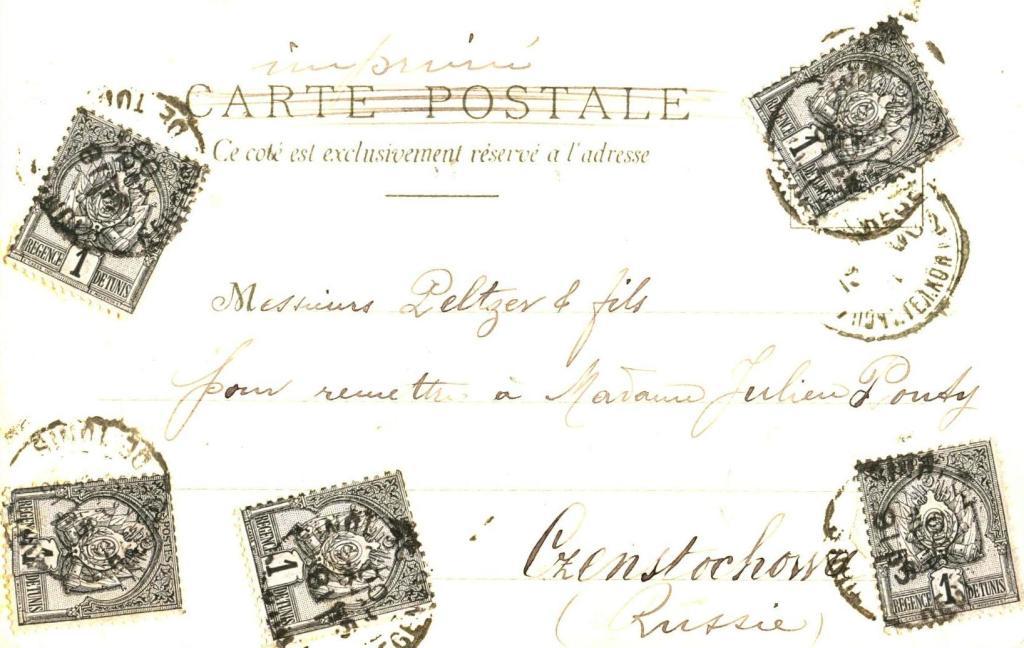 imprimé
CARTE POSTALE
Ce coté est exclusivement réservé a l'adresse
Messieurs Peltzer & fils
pour remettre à Madame Julien Ponty
Czenstochowa
(Russie)
REGENCE 1 DE TUNIS
REGENCE 1 DE TUNIS
REGENCE 1 DE TUNIS
REGENCE 1 DE TUNIS
REGENCE 1 DE TUNIS